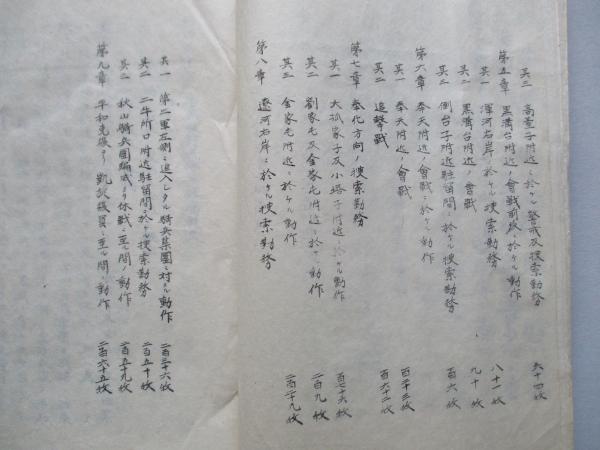 其三 高臺子附近ニ於ケル警戒及捜索勤務 六十四枚
第五章 黒溝台附近ノ會戰前後ニ於ケル動作 八十一枚
其一 渾河右岸ニ於ケル捜索勤務 九十枚
其二 黒溝台附近ノ會戰
其三 倒台子附近駐留間ニ於ケル捜索勤務 百六枚
第六章 奉天附近ノ會戰ニ於ケル動作
其一 奉天附近ノ會戰 百二十三枚
其二 追撃戰 百六十二枚
第七章 奉化方向ノ捜索勤務
其一 大孤家子及小塔子附近ニ於ケル動作 百七十六枚
其二 劉家屯及金家屯附近ニ於ケル動作 二百九枚
其三 金家屯附近ニ於ケル動作 二百二十九枚
第八章 遼河右岸ニ於ケル捜索勤務
其一 第二軍左側ニ進入シタル騎兵集團ニ対スル動作 二百三十六枚
其二 二牛所口附近駐留間ニ於ケル捜索勤務 二百五十枚
其三 秋山騎兵團編成ヨリ休戰ニ至ル間ノ動作 二百五十九枚
第九章 平和克復ヨリ凱旋復員ニ至ル間ノ動作 二百六十五枚